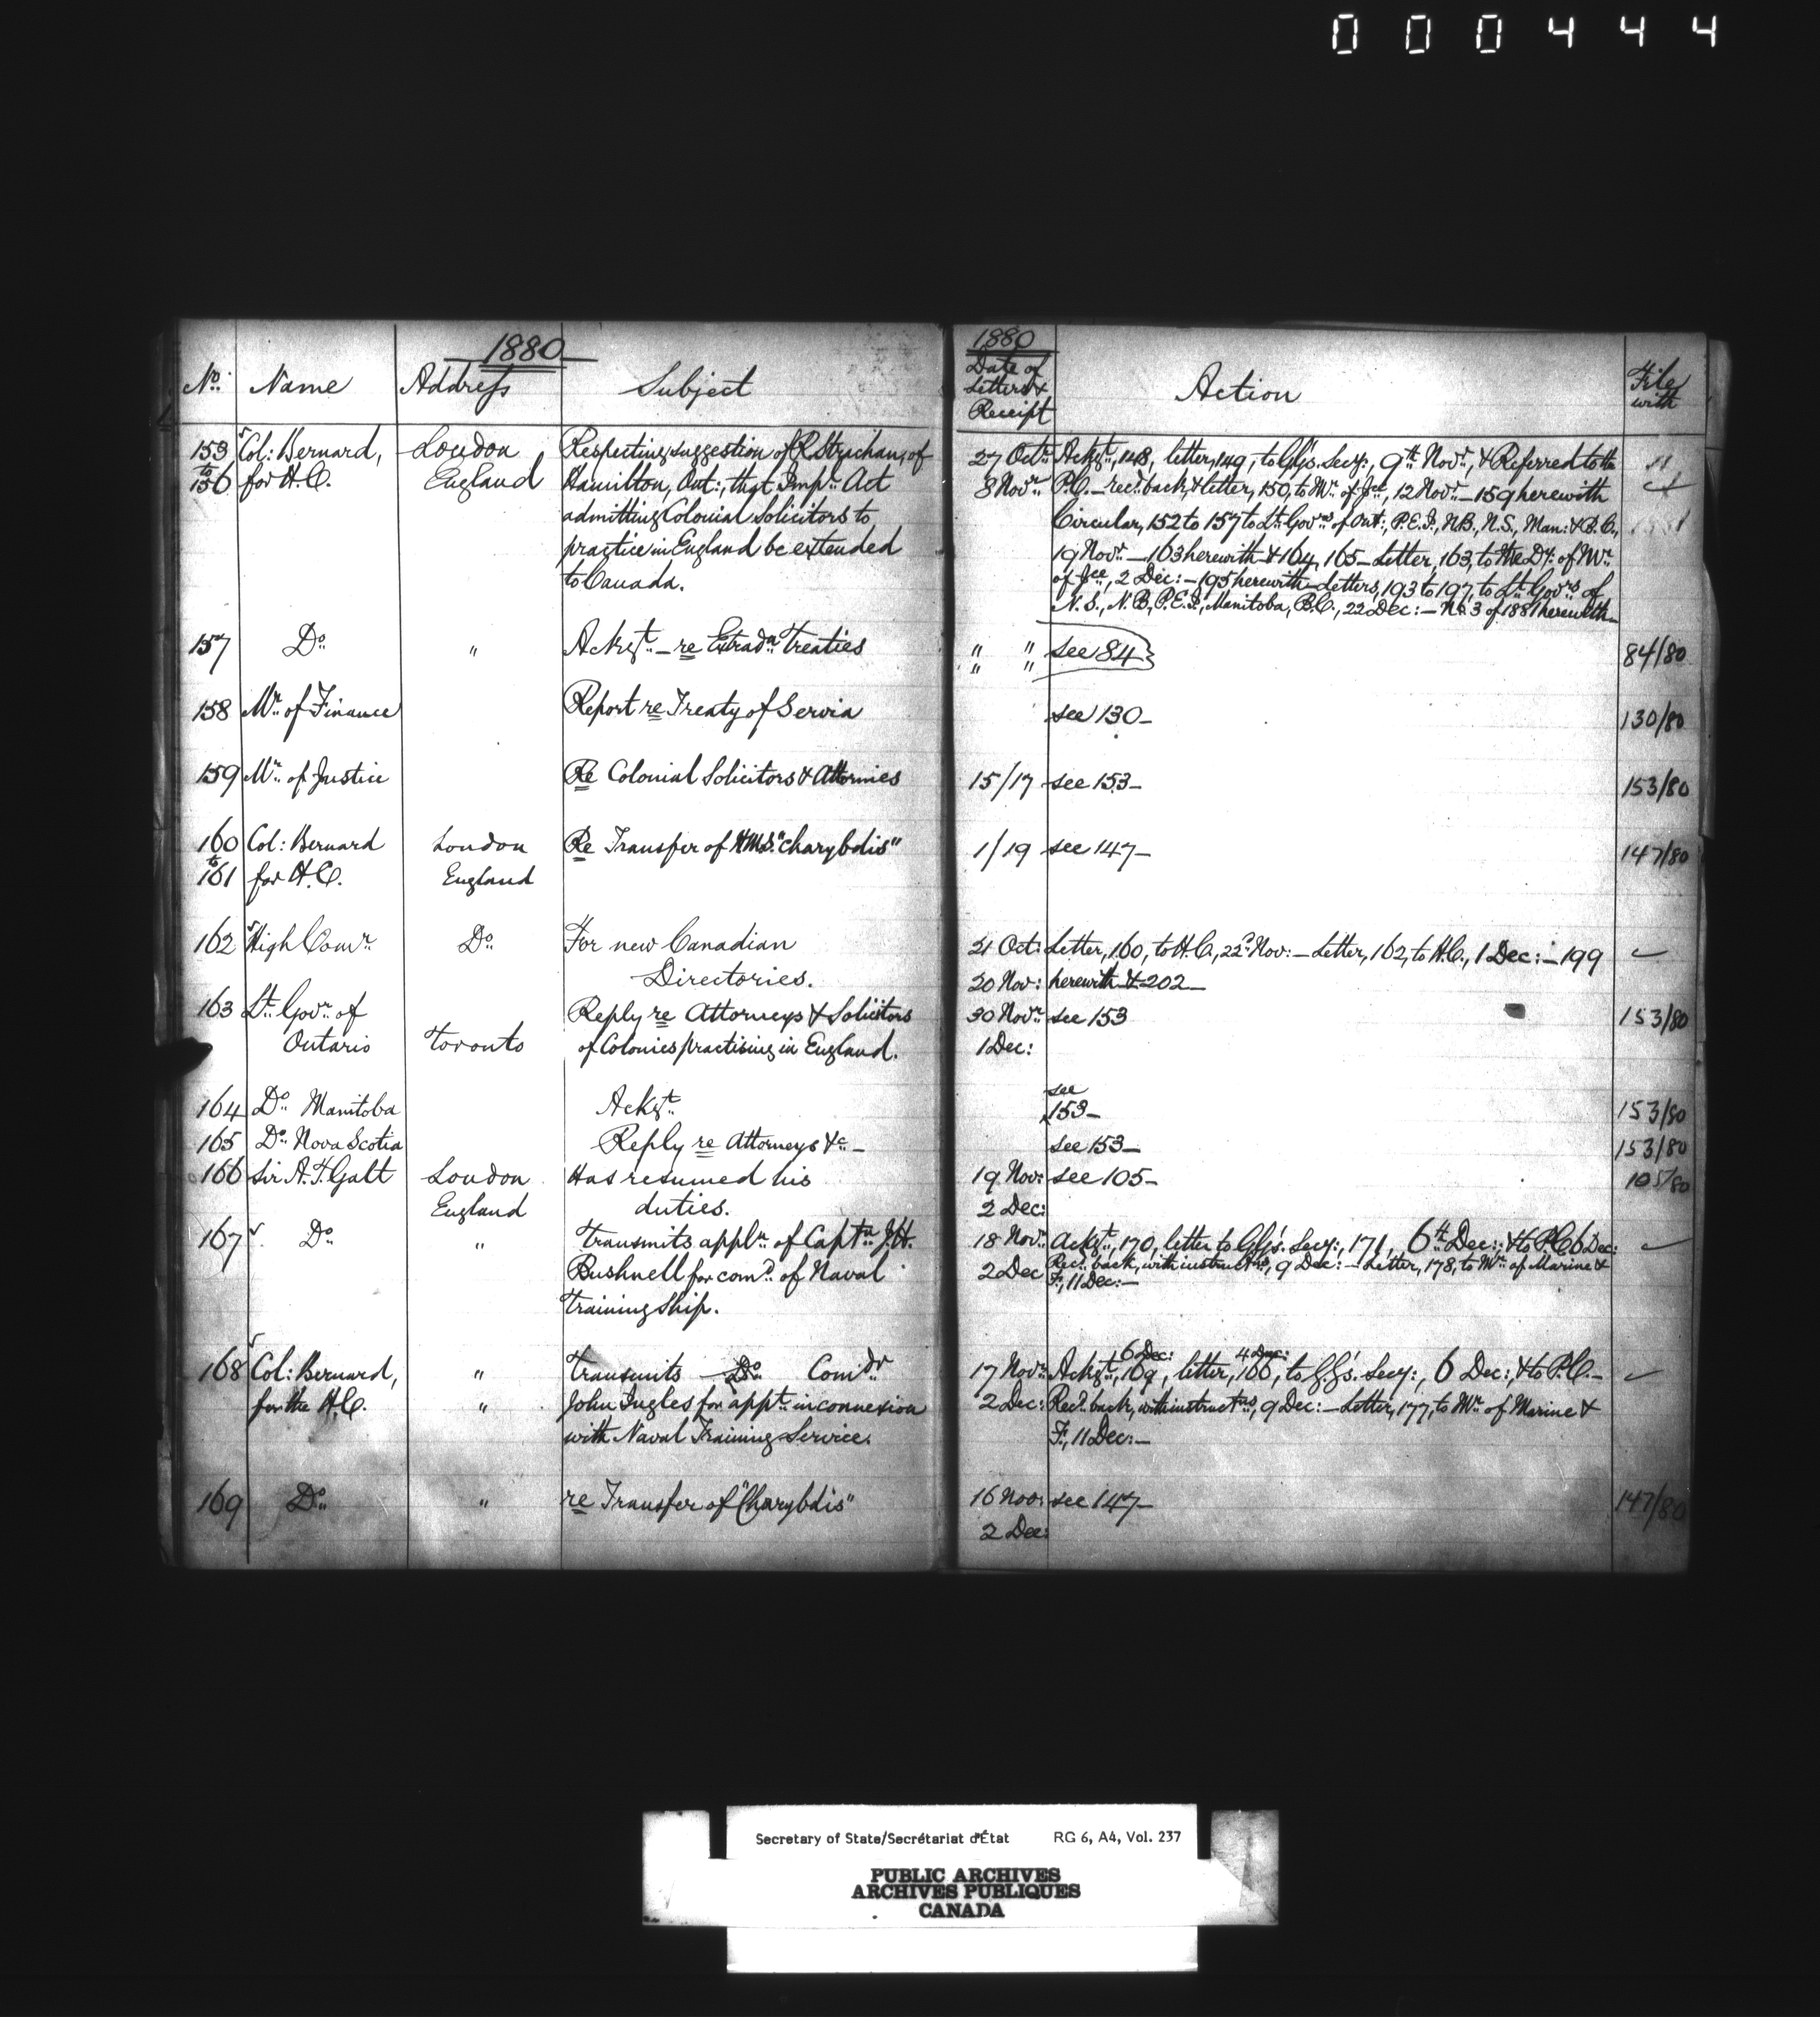 000444
1880
No. Name Address Subject
153 Col: Bernard, London Respecting suggestion of R. Strachan, of
to
156 for H.C. England Hamilton, Ont:, that Imp. Act
admitting Colonial Solicitors to
practice in England be extended
to Canada.
157 Do " Ackgt. – re Extradn. Treaties
158 Mr. of Finance Report re Treaty of Servia
159 Mr. of Justice Re Colonial Solicitors & Attornies
160 Col: Bernard London Re Transfer of H.M.S. "Charybdis"
to
161 for H.C. England
162 High Comr. Do For new Canadian
Directories.
163 Lt. Govr. of Reply re Attorneys & Solicitors
Ontario Toronto of Colonies practising in England.
164 Do. Manitoba Ackgt.
165 Do. Nova Scotia Reply re Attorneys &c. –
166 Sir A.T. Galt London Has resumed his
England duties.
167 Do " Transmits appln. of Captn. J.H.
Bushnell for comd. of Naval
Training Ship.
168 Col: Bernard, " Transmits Do Comdr.
for the H.C. " John Ingles for appt. in connexion
with Naval Training Service.
169 Do " re Transfer of "Charybdis"
1880
Date of
Letters &
Receipt
Action
File
with
27 Octr. Ackgt., 148, letter, 149, to G.G's. Secy:, 9th Novr., & Referred to the
8 Novr. P.C. – recd. back, & letter, 150, to Mr. of Jce, 12 Novr. – 159 herewith
Circular, 152 to 157 to Lt. Govrs. of Ont:, P.E.I., N.B., N.S., Man: & B.C.,
19 Novr. – 163 herewith & 164, 165 – Letter, 163, to the Dy. of Mr.
of Jce, 2 Dec: – 195 herewith – Letters, 193 to 197, to Lt. Govrs. of
N.S., N.B., P.E.I., Manitoba, B.C., 22 Dec: – No. 3 of 1881 herewith –
" " see 84 84/80
" "
see 130 – 130/80
15/17 see 153 – 153/80
1/19 see 147 – 147/80
21 Oct: Letter, 160, to H.C., 22d. Nov: – Letter, 162, to H.C., 1 Dec: – 199
20 Nov: herewith & 202 –
30 Novr. see 153 153/80
1 Dec:
see
153 – 153/80
see 153 – 153/80
19 Nov: see 105 – 105/80
2 Dec:
18 Novr. Ackgt., 170, letter to G.G's. Secy:, 171, 6th Dec:, & to P.C. 6 Dec:
2 Dec Recd. back, with instructns, 9 Dec: – Letter, 178, to Mr. of Marine &
F., 11 Dec: –
6 Dec: 4 Dec:
17 Novr. Ackgt., 169, letter, 166, to G.G's. Secy:, 6 Dec:, & to P.C. –
2 Dec: Recd. back, with instructns, 9 Dec: – Letter, 177, to Mr. of Marine &
F., 11 Dec: –
16 Nov: see 147 – 147/80
2 Dec:
Secretary of State/Secrétariat d'État RG 6, A4, Vol. 237
PUBLIC ARCHIVES
ARCHIVES PUBLIQUES
CANADA